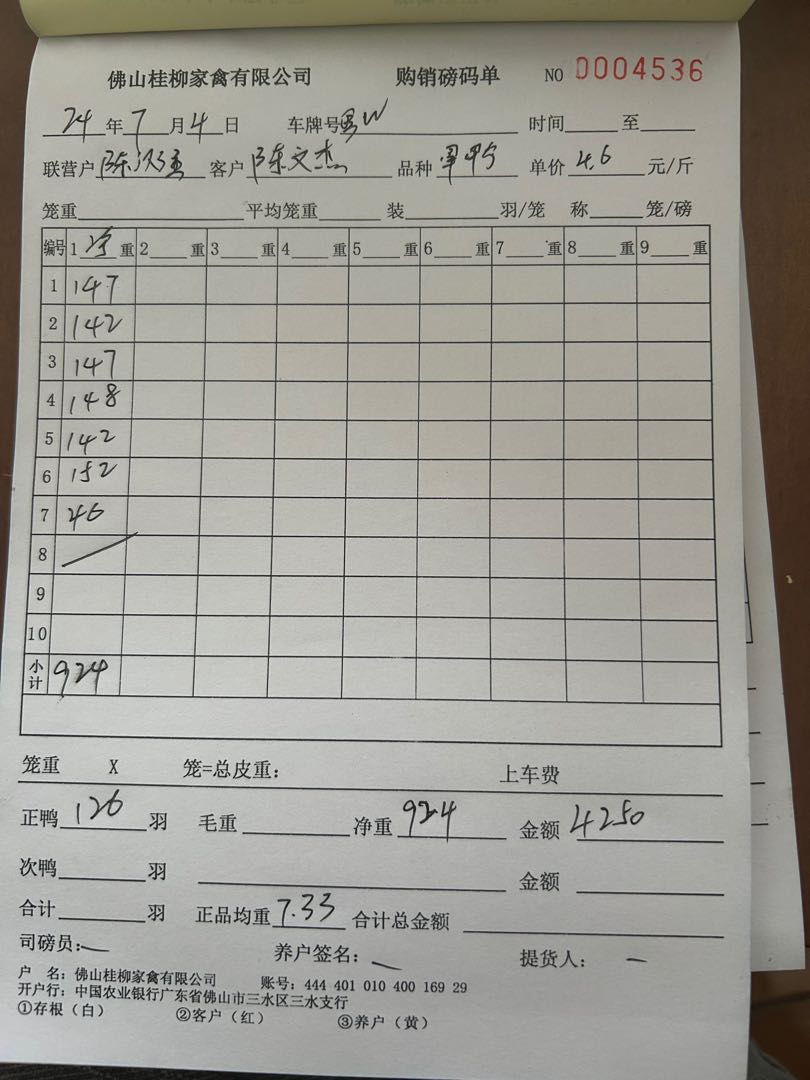 佛山桂柳家禽有限公司 购销磅码单 NO 0004536
24年7月4日 车牌号 时间 至
联营户 陈 客户 陈文杰 品种 单价 4.6 元/斤
笼重 平均笼重 装 羽/笼 称 笼/磅
编号 1 净 重 2 重 3 重 4 重 5 重 6 重 7 重 8 重 9 重
1 147
2 142
3 147
4 148
5 142
6 152
7 46
8
9
10
小计 924
笼重 X 笼=总皮重: 上车费
正鸭 126 羽 毛重 净重 924 金额 4250
次鸭 羽 金额
合计 羽 正品均重 7.33 合计总金额
司磅员: 养户签名: 提货人:
户 名: 佛山桂柳家禽有限公司 账号: 444 401 010 400 169 29
开户行: 中国农业银行广东省佛山市三水区三水支行
①存根(白) ②客户(红) ③养户(黄)